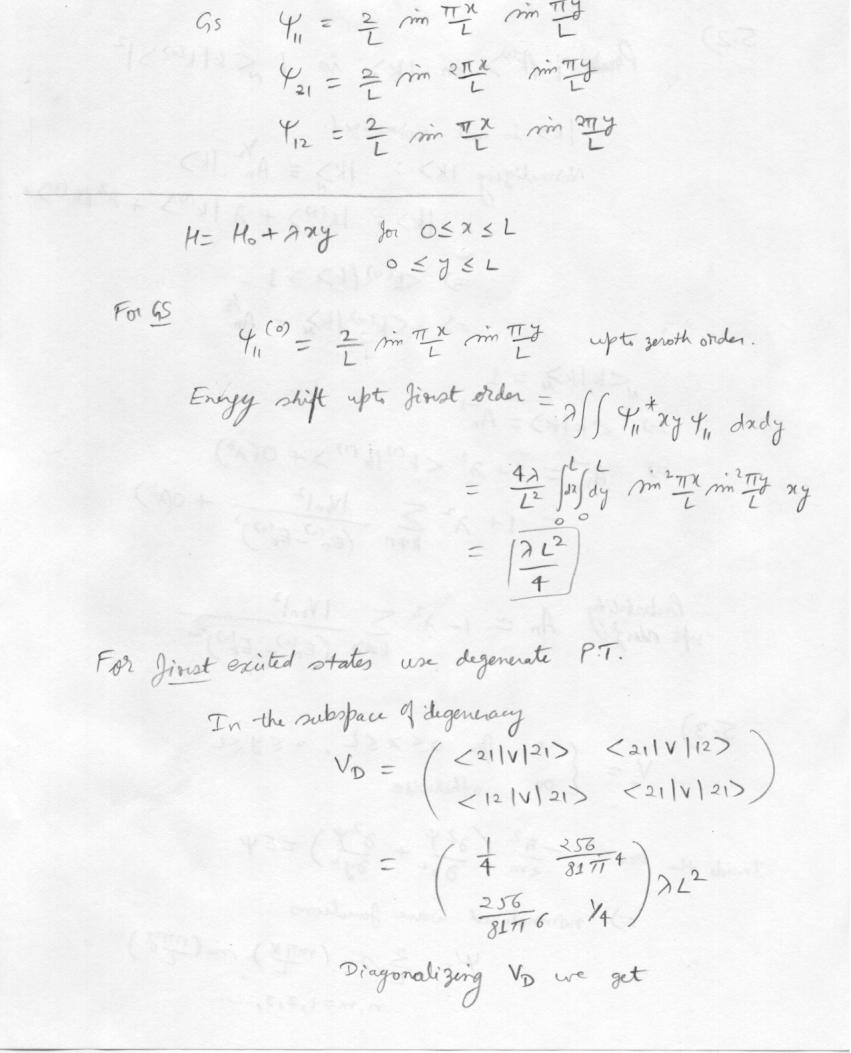 GS ψ₁₁ = 2/L sin πx/L sin πy/L
ψ₂₁ = 2/L sin 2πx/L sin πy/L
ψ₁₂ = 2/L sin πx/L sin 2πy/L
H = H₀ + λxy for 0 ≤ x ≤ L
0 ≤ y ≤ L
For GS
ψ₁₁⁽⁰⁾ = 2/L sin πx/L sin πy/L upto zeroth order.
Energy shift upto first order = λ∫∫ ψ₁₁* xy ψ₁₁ dxdy
= 4λ/L² ∫₀ᴸdx ∫₀ᴸdy sin² πx/L sin² πy/L xy
= λL²/4
For first excited states use degenerate P.T.
In the subspace of degeneracy
V_D = ( <21|V|21> <21|V|12>
<12|V|21> <21|V|21> )
= ( 1/4 256/81π4
256/81π6 1/4 ) λL²
Diagonalizing V_D we get